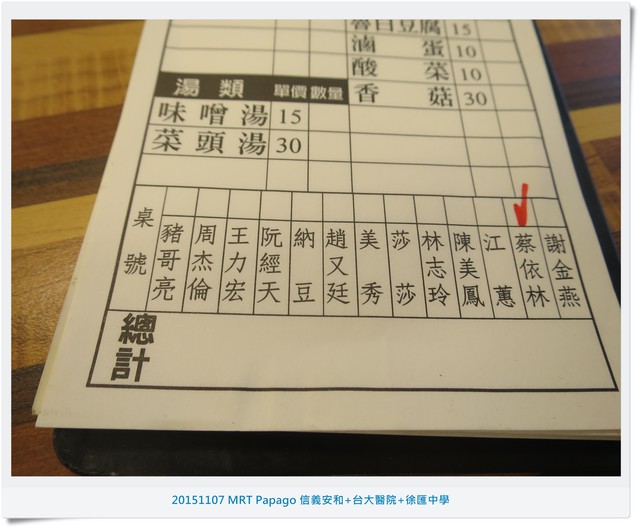 魯白豆腐 15
滷蛋 10
酸菜 10
香菇 30
湯類 單價 數量
味噌湯 15
菜頭湯 30
桌號
豬哥亮
周杰倫
王力宏
阮經天
納豆
趙又廷
美秀
莎莎
林志玲
陳美鳳
江蕙
蔡依林
謝金燕
總計
20151107 MRT Papago 信義安和+台大醫院+徐匯中學